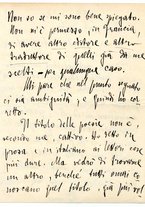 Non so se mi sono bene spiegato.
Non mi è permesso, in Francia,
di avere altro editore e altro
traduttore di quelli già da me
scelti - per qualunque caso.
Mi pare che al punto segnato
ci sia ambiguità, e quindi ho cor-
retto.
Il titolo delle poesie non è,
secondo me, cattivo. Ho retto in
prosa e in italiano ai lettori cose
più dure. Ma vedrò di trovarne
un altro, perché tutti mi
nel titolo, già più vol